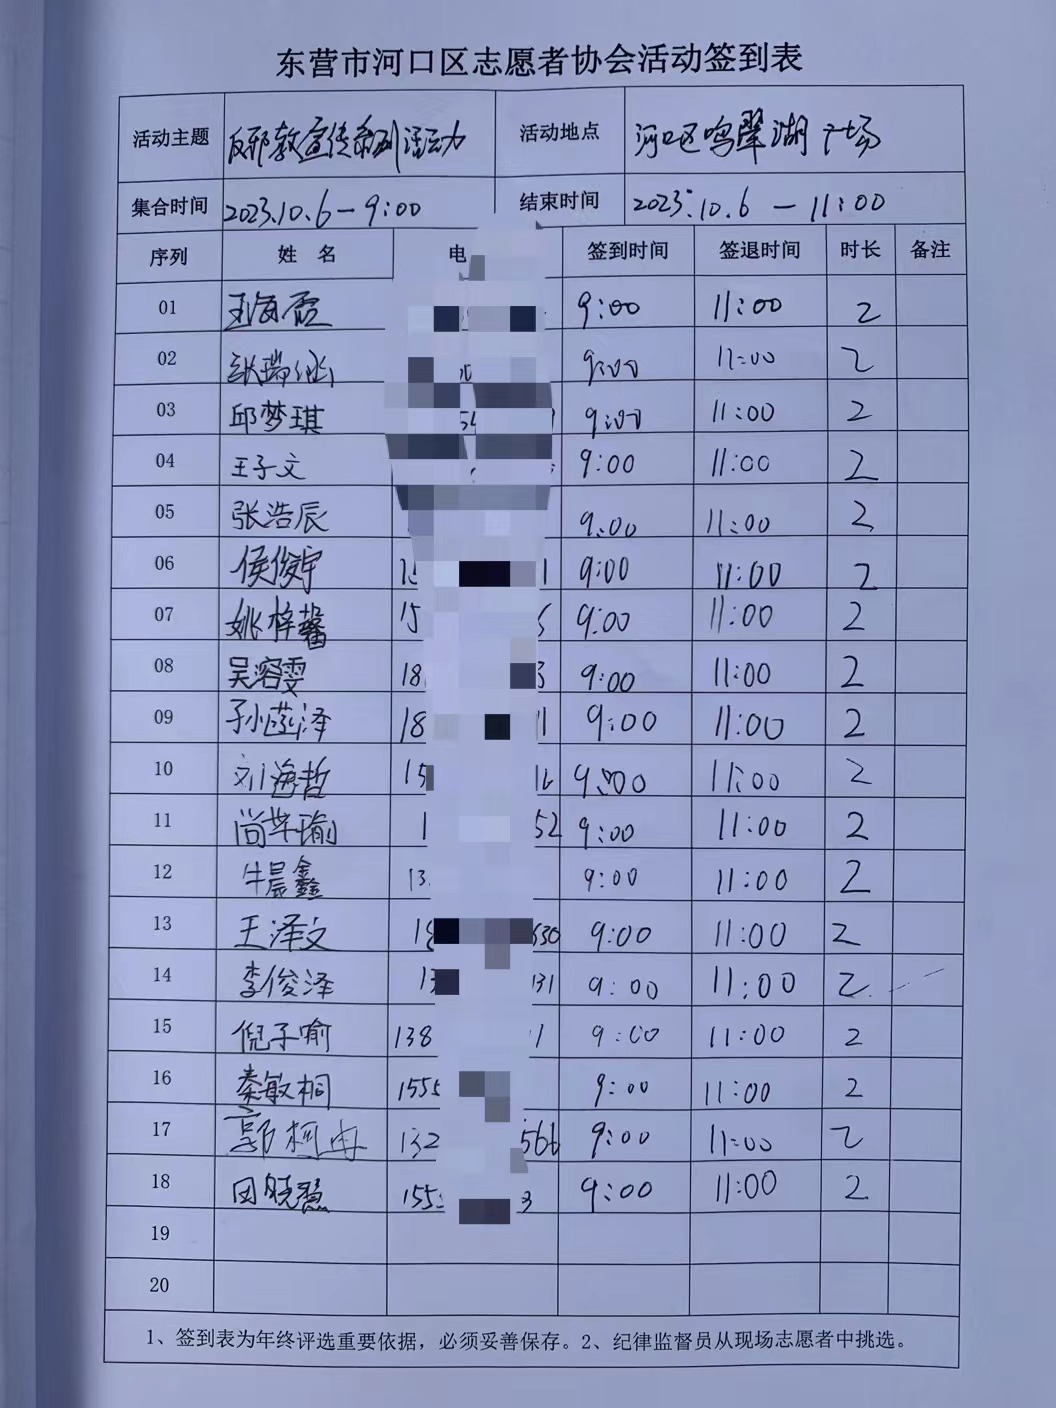 东营市河口区志愿者协会活动签到表
活动主题 反邪教宣传系列活动 活动地点 河口区鸣翠湖广场
集合时间 2023.10.6-9:00 结束时间 2023.10.6-11:00
序列 姓名 电 签到时间 签退时间 时长 备注
01 王海霞 9:00 11:00 2
02 张瑞涵 9:00 11:00 2
03 邱梦琪 9:00 11:00 2
04 王子文 9:00 11:00 2
05 张浩辰 9:00 11:00 2
06 侯俊宇 1 9:00 11:00 2
07 姚梓馨 15 9:00 11:00 2
08 吴容雯 18 3 9:00 11:00 2
09 孙菡泽 18 11 9:00 11:00 2
10 刘海哲 15 16 9:00 11:00 2
11 尚华瑜 1 52 9:00 11:00 2
12 牛晨鑫 13 9:00 11:00 2
13 王泽文 18 530 9:00 11:00 2
14 李俊泽 13 131 9:00 11:00 2
15 倪子喻 138 1 9:00 11:00 2
16 秦敏桐 1555 9:00 11:00 2
17 郭柯冉 132 566 9:00 11:00 2
18 田晓慧 155 3 9:00 11:00 2
19
20
1、签到表为年终评选重要依据，必须妥善保存。2、纪律监督员从现场志愿者中挑选。